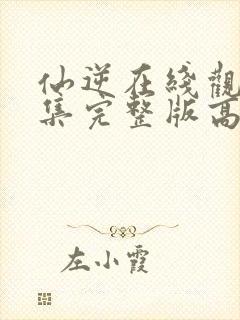 仙逆在綫觀
集完整版高
左小霞